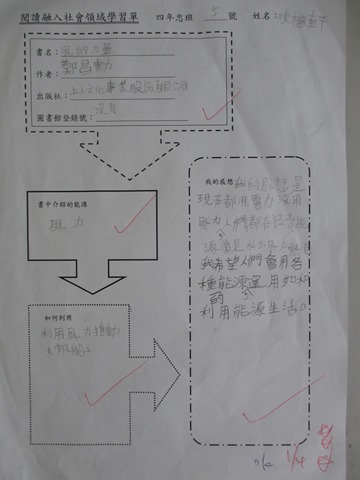 閱讀融入社會領域學習單 四年忠班 5 號 姓名：
書名：風的力量
作者：鄭昌勳
出版社：上人文化事業股份有限公司
圖書館登錄號：沒有
書中介紹的能源
風力
如何利用
利用風力推動
大帆船。
我的感想 我的感想是
現在都用電力沒用
風力人們都在
我希望人們會用各
種能源運用如何
的
利用能源生活。
1/4